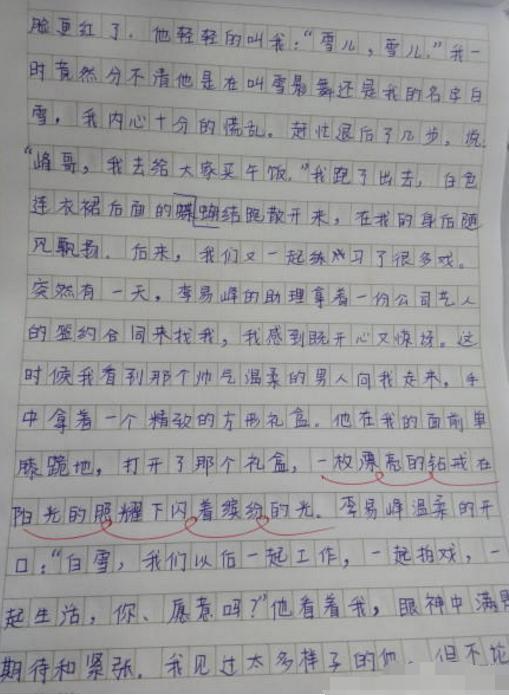 脸更红了。他轻轻的叫我：“雪儿，雪儿。”我一
时竟然分不清他是在叫雪影舞还是我的名字白
雪，我内心十分的慌乱。赶忙退后了几步，说：
“峰哥，我去给大家买午饭。”我跑了出去，白色
连衣裙后面的蝴蝶结跑散开来，在我的身后随
风飘扬。后来，我们又一起练习了很多戏。
突然有一天，李易峰的助理拿着一份公司艺人
的签约合同来找我，我感到既开心又惊讶。这
时候我看到那个帅气温柔的男人向我走来，手
中拿着一个精致的方形礼盒。他在我的面前单
膝跪地，打开了那个礼盒，一枚漂亮的钻戒在
阳光的照耀下闪着缤纷的光。李易峰温柔的开
口：“白雪，我们以后一起工作，一起拍戏，一
起生活，你、愿意吗？”他看着我，眼神中满是
期待和紧张。我见过太多样子的他，但不论